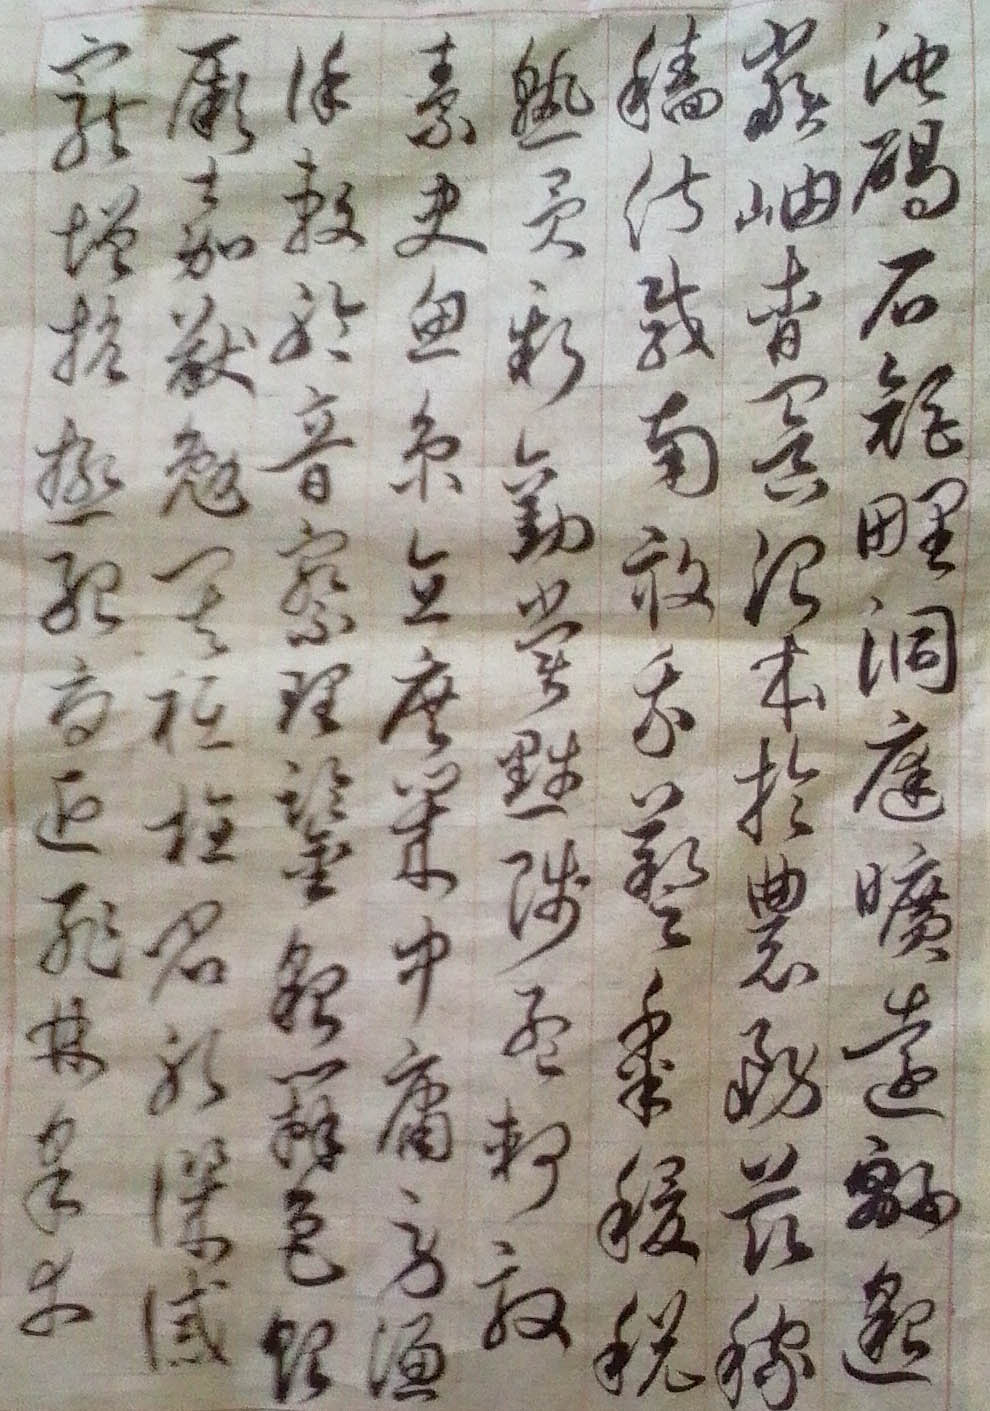 池碣石鉅野洞庭曠遠緜邈
巖岫杳冥治本於農務茲稼
穡俶載南畝我藝黍稷稅
熟貢新勸賞黜陟孟軻敦
素史魚秉直庶幾中庸勞謙
謹敕聆音察理鑑貌辨色貽
厥嘉猷勉其祗植省躬譏誡
寵增抗極殆辱近恥林皋幸